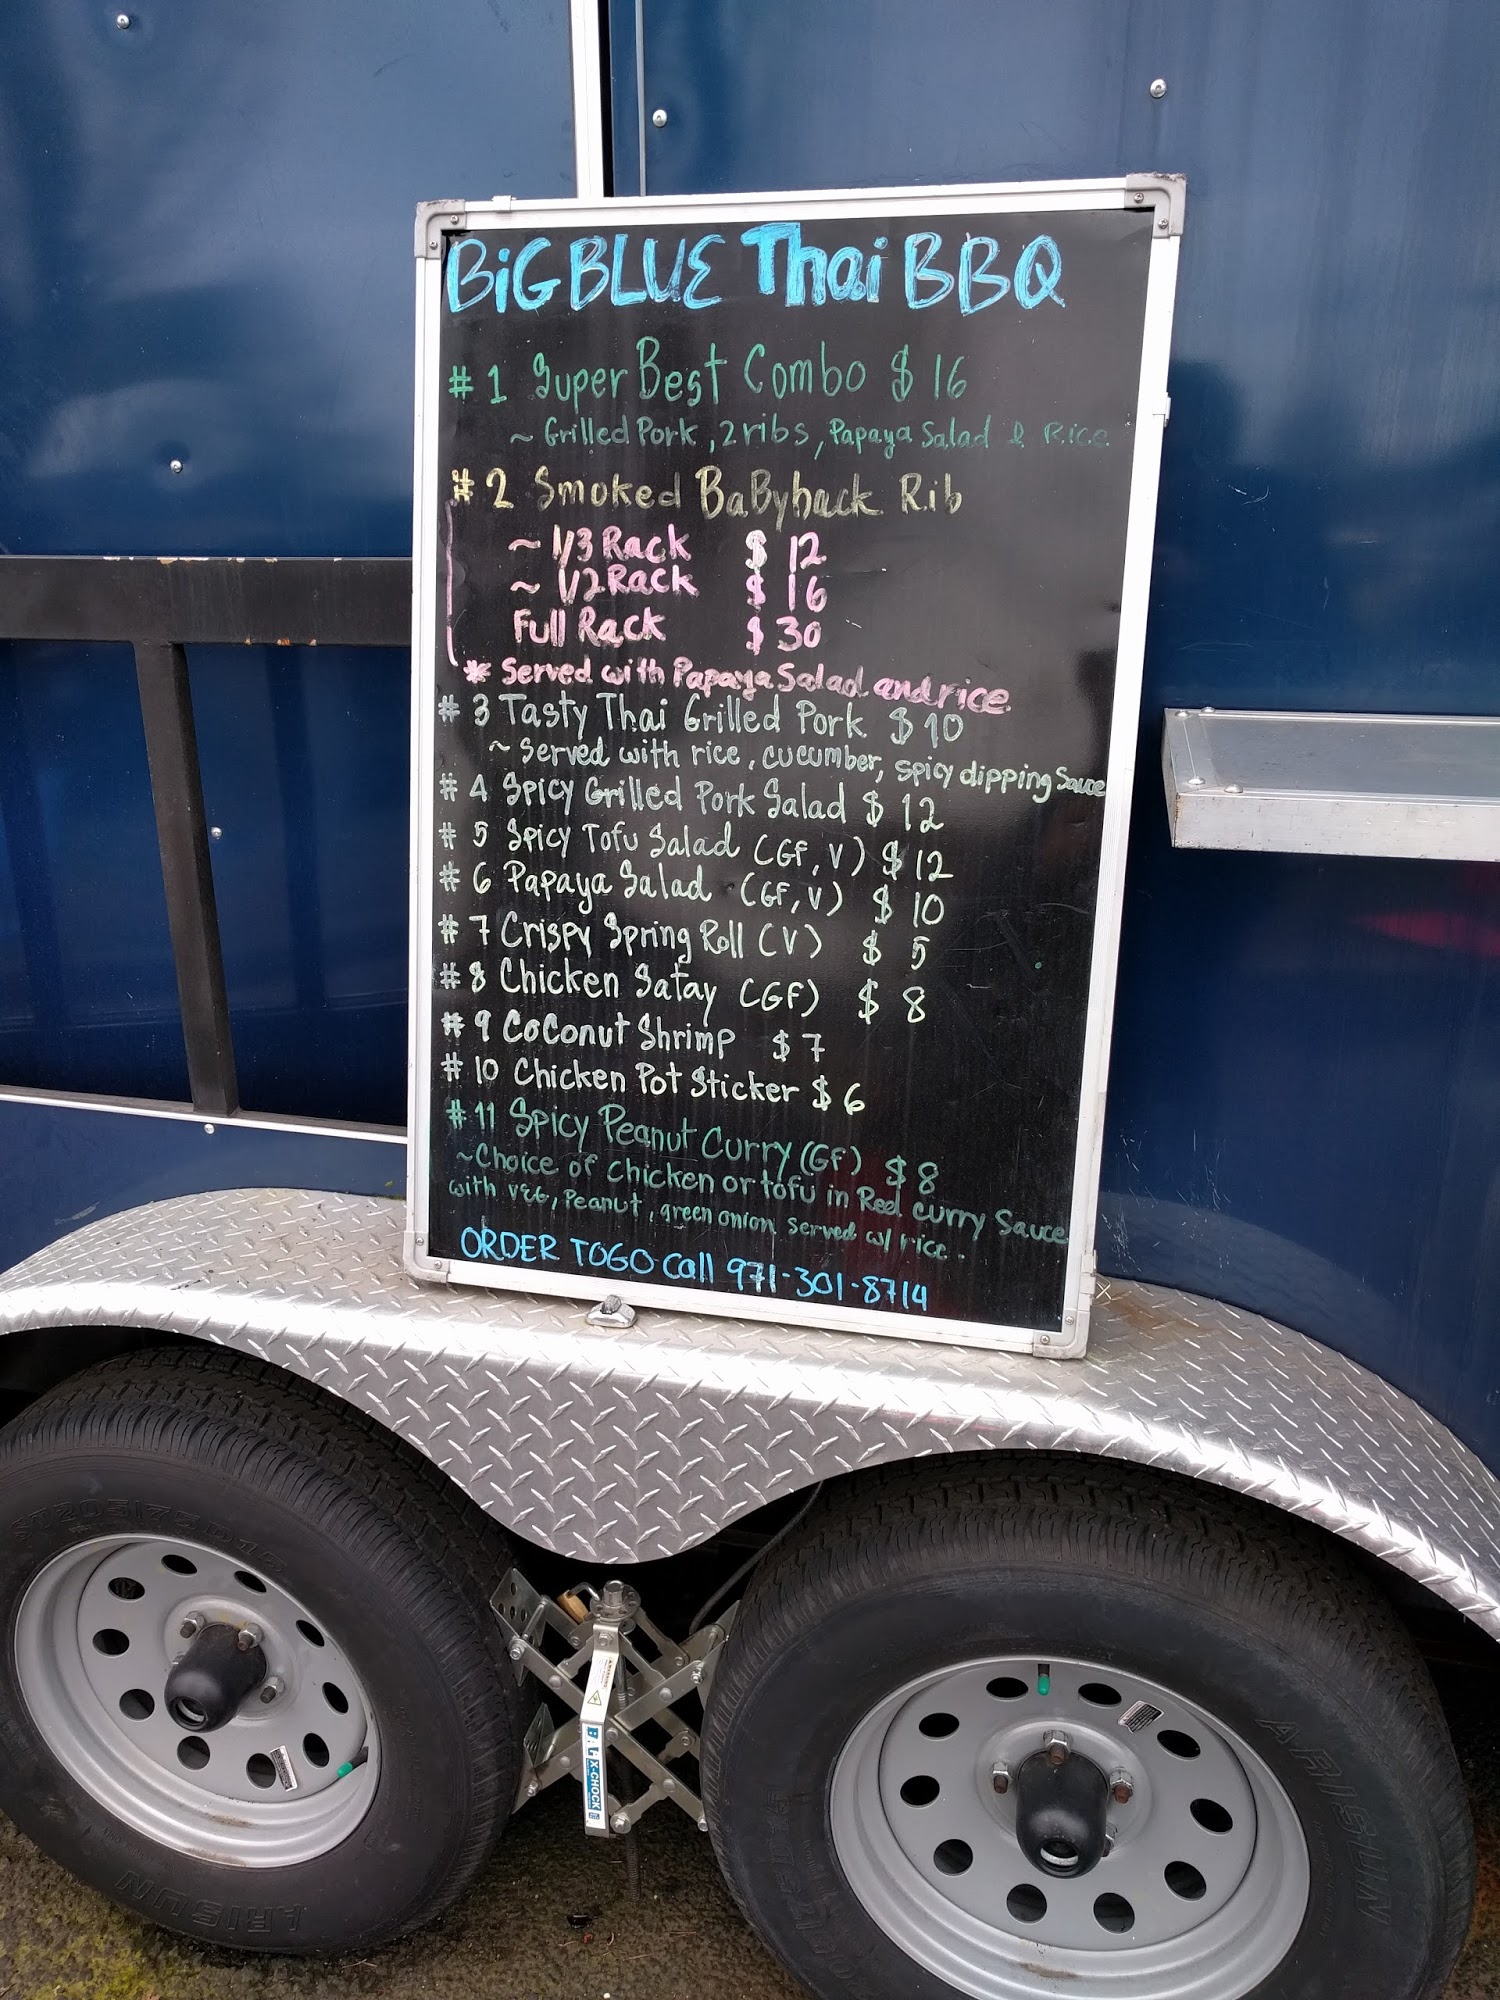 BiG BLUE Thai BBQ
# 1 Super Best Combo $ 16
~ Grilled Pork, 2 ribs, Papaya Salad & Rice
# 2 Smoked BaByback Rib
~ 1/3 Rack $ 12
~ 1/2 Rack $ 16
Full Rack $ 30
* Served with Papaya Salad and rice
# 3 Tasty Thai Grilled Pork $ 10
~ Served with rice, cucumber, spicy dipping Sauce
# 4 Spicy Grilled Pork Salad $ 12
# 5 Spicy Tofu Salad (GF, V) $ 12
# 6 Papaya Salad (GF, V) $ 10
# 7 Crispy Spring Roll (V) $ 5
# 8 Chicken Satay (GF) $ 8
# 9 CoConut Shrimp $ 7
# 10 Chicken Pot Sticker $ 6
# 11 Spicy Peanut Curry (GF) $ 8
~ Choice of Chicken or tofu in Red curry Sauce
with VEG, Peanut, green onion served w/ rice.
ORDER TOGO Call 971-301-8714
ST205/75D15
ARISUN
ARISUN
BAL X-CHOCK